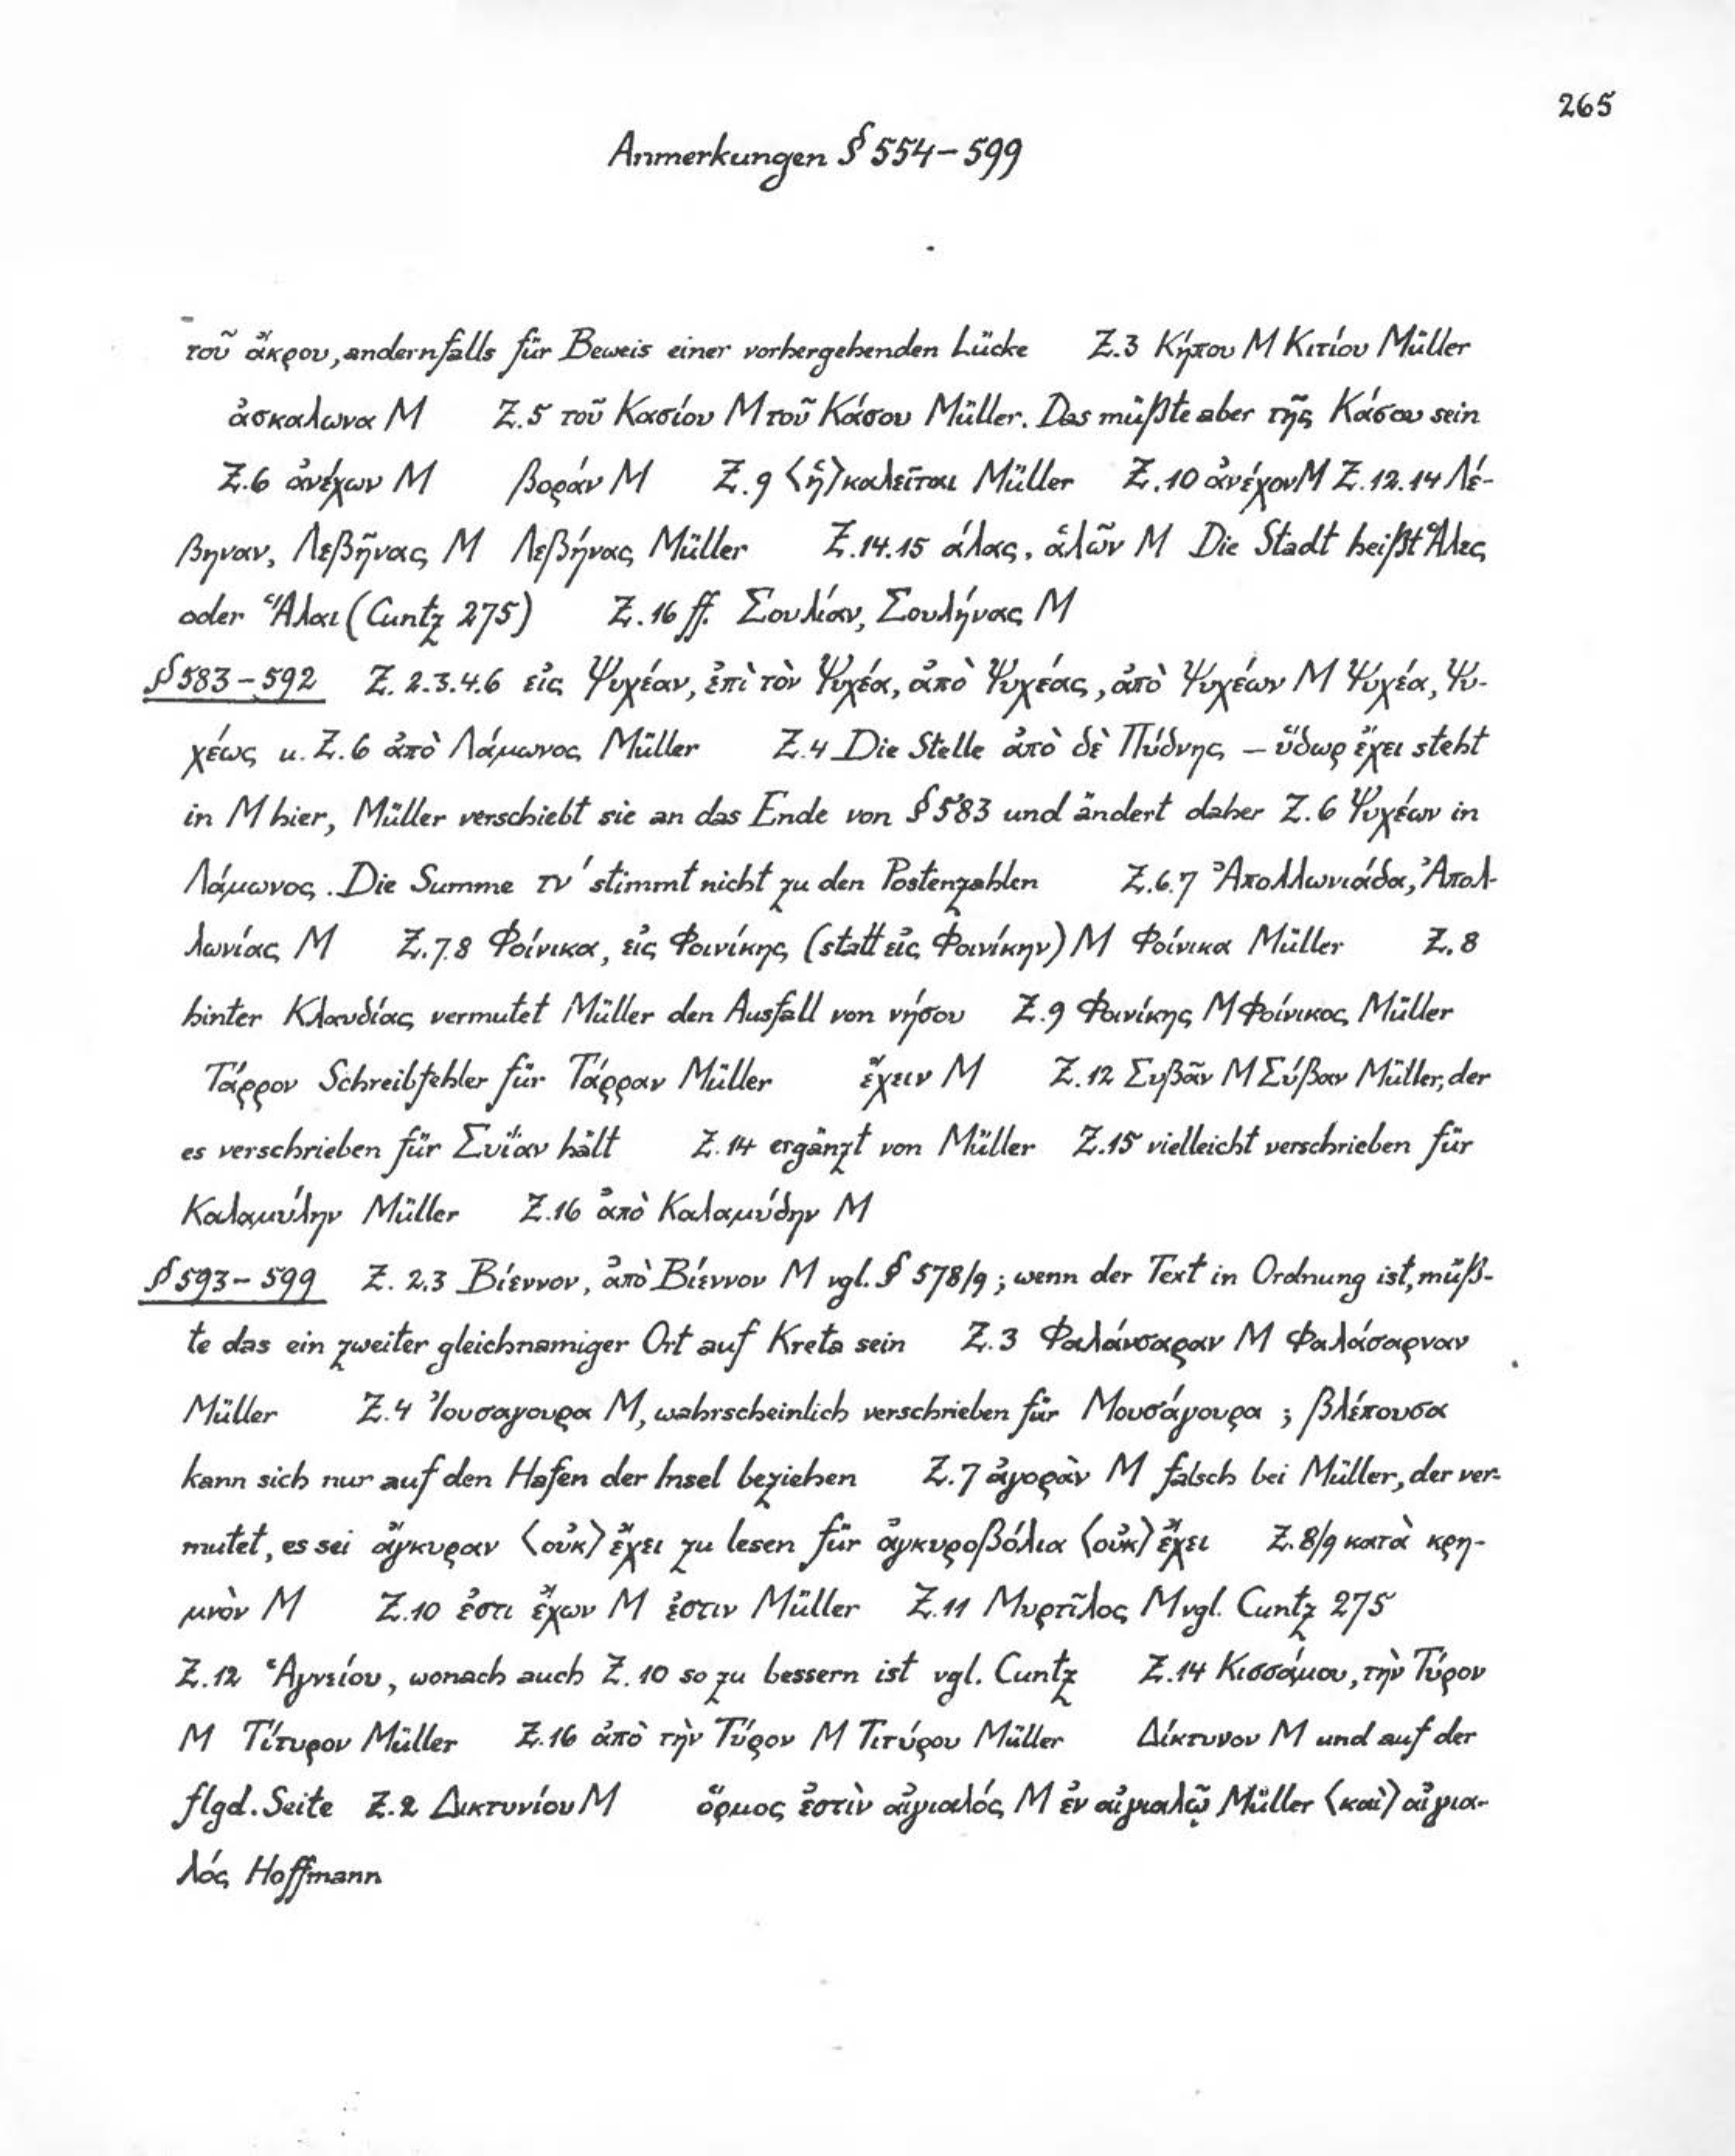 265
Anmerkungen § 554–599
τοῦ ἄκρου, andernfalls für Beweis einer vorhergehenden Lücke Z.3 Κήπου M Κιτίου Müller
ἀσκαλωνα M Z.5 τοῦ Κασίου M τοῦ Κάσου Müller. Das müßte aber τῆς Κάσου sein
Z.6 ἀνέχων M βοράν M Z.9 〈ἣ〉 καλεῖται Müller Z.10 ἀνέχον M Z.12.14 Λέ-
βηναν, Λεβῆνας M Λεβήνας Müller Z.14.15 άλας, ἁλῶν M Die Stadt heißt Ἅλες
oder Ἅλαι (Cuntz 275) Z.16 ff. Σουλίαν, Σουλήνας M
§ 583–592 Z. 2.3.4.6 εἰς Ψυχέαν, ἐπὶ τὸν Ψυχέα, ἀπὸ Ψυχέας, ἀπὸ Ψυχέων M Ψυχέα, Ψυ-
χέως u. Z.6 ἀπὸ Λάμωνος Müller Z.4 Die Stelle ἀπὸ δὲ Πύδνης – ὕδωρ ἔχει steht
in M hier, Müller verschiebt sie an das Ende von § 583 und ändert daher Z.6 Ψυχέων in
Λάμωνος. Die Summe τν' stimmt nicht zu den Postenzahlen Z.6.7 Ἀπολλωνιάδα, Ἀπολ-
λωνίας M Z.7.8 Φοίνικα, εἰς Φοινίκης (statt εἰς Φοινίκην) M Φοίνικα Müller Z.8
hinter Κλαυδίας vermutet Müller den Ausfall von νήσου Z.9 Φοινίκης M Φοίνικος Müller
Τάρρον Schreibfehler für Τάρραν Müller ἔχειν M Z.12 Συβᾶν M Σύβαν Müller, der
es verschrieben für Συΐαν hält Z.14 ergänzt von Müller Z.15 vielleicht verschrieben für
Καλαμύλην Müller Z.16 ἀπὸ Καλαμύδην M
§ 593–599 Z. 2.3 Βίεννον, ἀπὸ Βίεννον M vgl. § 578/9; wenn der Text in Ordnung ist, müß-
te das ein zweiter gleichnamiger Ort auf Kreta sein Z.3 Φαλάνσαραν M Φαλάσαρναν
Müller Z.4 Ἰουσαγουρα M, wahrscheinlich verschrieben für Μουσάγουρα ; βλέπουσα
kann sich nur auf den Hafen der Insel beziehen Z.7 ἀγορὰν M falsch bei Müller, der ver-
mutet, es sei ἄγκυραν 〈οὐκ〉 ἔχει zu lesen für ἀγκυροβόλια 〈οὐκ〉 ἔχει Z.8/9 κατὰ κρη-
μνὸν M Z.10 ἐστι ἔχων M ἐστιν Müller Z.11 Μυρτῖλος M vgl. Cuntz 275
Z.12 Ἁγνείου, wonach auch Z.10 so zu bessern ist vgl. Cuntz Z.14 Κισσάμου, τὴν Τύρον
M Τίτυρον Müller Z.16 ἀπὸ τὴν Τύρον M Τιτύρου Müller Δίκτυνον M und auf der
flgd. Seite Z.2 Δικτυνίου M ὅρμος ἐστὶν αἰγιαλός M ἐν αἰγιαλῷ Müller 〈καὶ〉 αἰγια-
λός Hoffmann